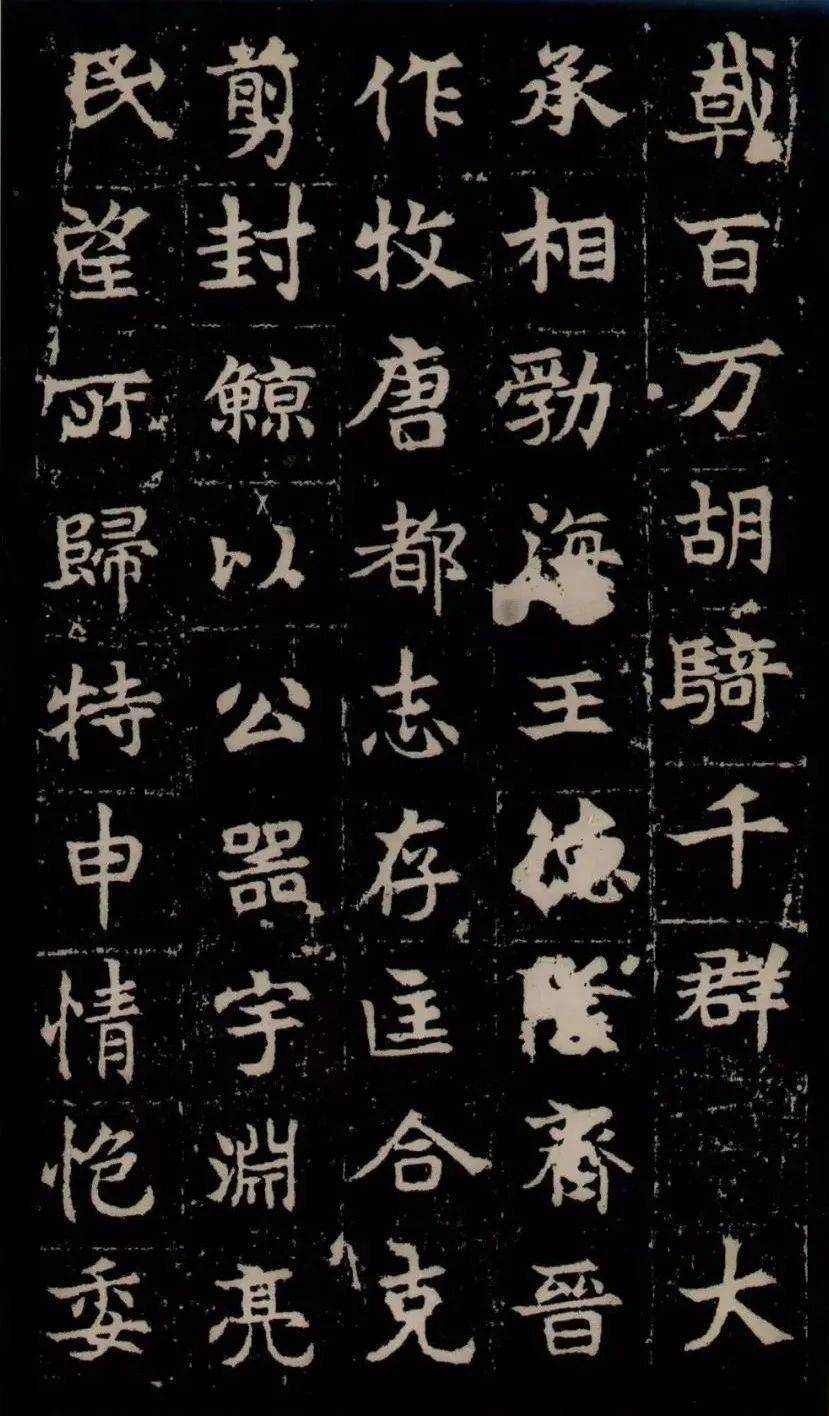 戟百万胡騎千群 大
承相勃海王德隆齊晉
作牧唐都志存匡合克
剪封鯨以公器宇淵亮
民望所歸特申情抱委